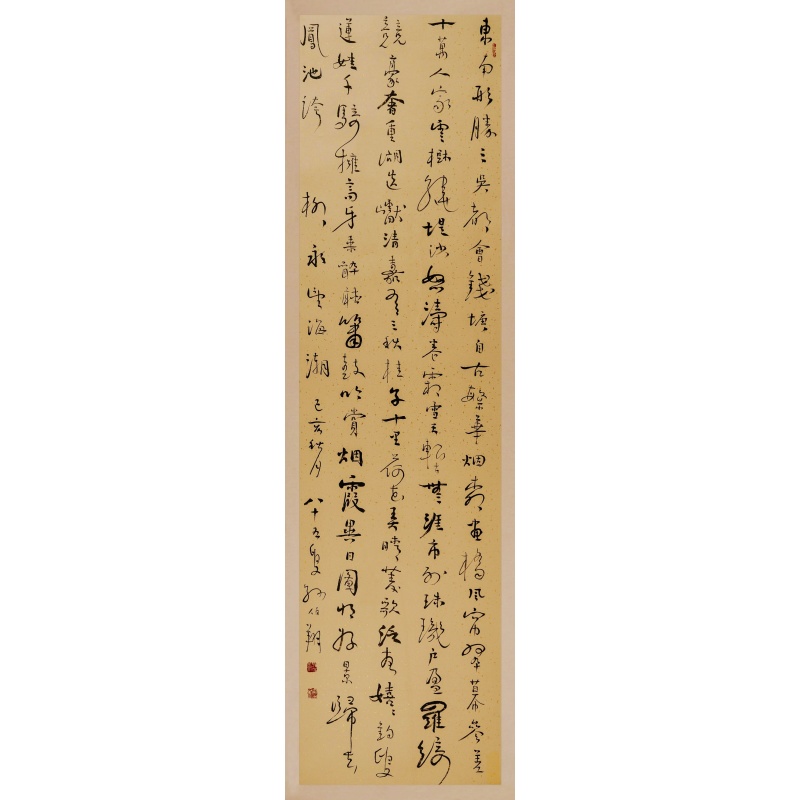 東南形勝三吳都會錢塘自古繁華烟柳畫橋風簾翠幕參差
十萬人家雲樹繞堤沙怒濤卷霜雪天塹無涯市列珠璣戶盈羅綺
競豪奢重湖迭巘清嘉有三秋桂子十里荷花晴菱歌泛夜嬉々釣叟
蓮娃千騎擁高牙乘醉聽簫鼓吟賞烟霞異日圖將好景歸去
鳳池誇 柳永望海潮 己亥秋月 八十五叟孫伯翔